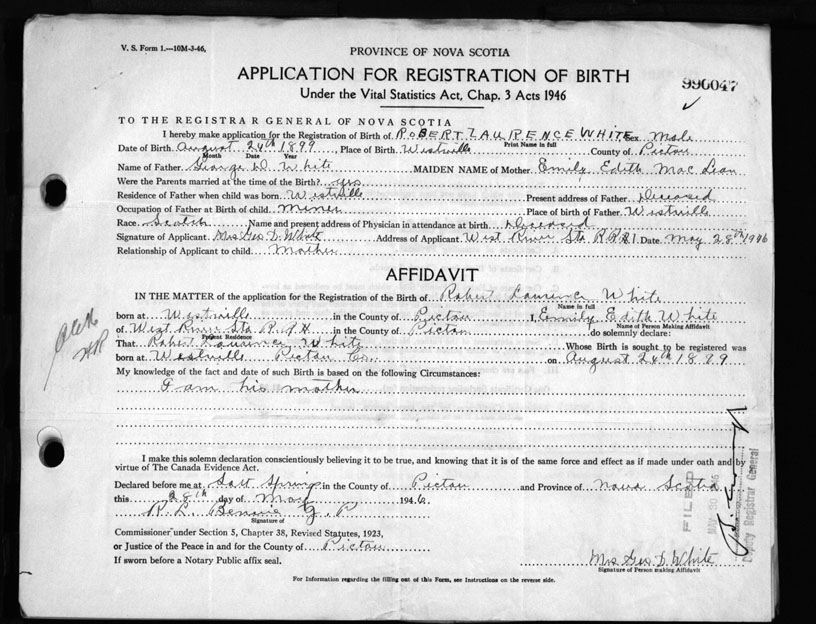 V. S. Form 1.—10M-3-46,
PROVINCE OF NOVA SCOTIA
APPLICATION FOR REGISTRATION OF BIRTH
990047
Under the Vital Statistics Act, Chap. 3 Acts 1946
TO THE REGISTRAR GENERAL OF NOVA SCOTIA
I hereby make application for the Registration of Birth of ROBERT LAURENCE WHITE Sex Male
Print Name in full
Date of Birth August 24th 1899, Place of Birth Westville County of Pictou
Month Date Year
Name of Father George D. White MAIDEN NAME of Mother Emily Edith MacLean
Were the Parents married at the time of the Birth? yes
Residence of Father when child was born Westville Present address of Father Deceased
Occupation of Father at Birth of child miner Place of birth of Father Westville
Race Scotch Name and present address of Physician in attendance at birth Deceased
Signature of Applicant Mrs Geo. D. White Address of Applicant West River Sta R.R.#1 Date May 28th/1946
Relationship of Applicant to child Mother
AFFIDAVIT
IN THE MATTER of the application for the Registration of the Birth of Robert Laurence White
Name in full
born at Westville in the County of Pictou I, Emily Edith White
Name of Person Making Affidavit
of West River Sta in the County of Pictou do solemnly declare:
Present Residence
That Robert Laurence White Whose Birth is sought to be registered was
born at Westville Pictou Co. on August 24th 1899
My knowledge of the fact and date of such Birth is based on the following Circumstances:
I am his mother
I make this solemn declaration conscientiously believing it to be true, and knowing that it is of the same force and effect as if made under oath and by
virtue of The Canada Evidence Act.
Declared before me at Salt Springs in the County of Pictou and Province of Nova Scotia
this 28th day of May 1946
R. L.
Signature of
Commissioner under Section 5, Chapter 38, Revised Statutes, 1923,
or Justice of the Peace in and for the County of Pictou
If sworn before a Notary Public affix seal.
Mrs Geo. D. White
Signature of Person making Affidavit
For Information regarding the filling out of this Form, see Instructions on the reverse side.
FILED
Deputy Registrar General